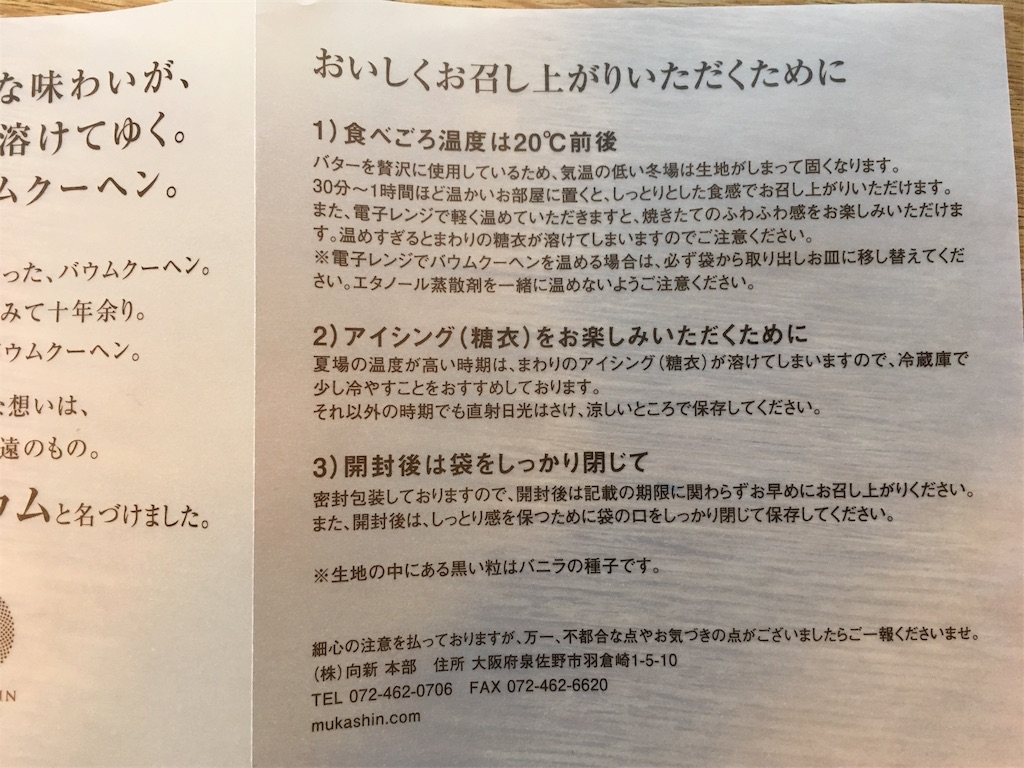 な味わいが、
溶けてゆく。
ムクーヘン。
った、バウムクーヘン。
みて十年余り。
バウムクーヘン。
な想いは、
遠のもの。
ウムと名づけました。
IN
おいしくお召し上がりいただくために
1）食べごろ温度は20℃前後
バターを贅沢に使用しているため、気温の低い冬場は生地がしまって固くなります。
30分～1時間ほど温かいお部屋に置くと、しっとりとした食感でお召し上がりいただけます。
また、電子レンジで軽く温めていただきますと、焼きたてのふわふわ感をお楽しみいただけま
す。温めすぎるとまわりの糖衣が溶けてしまいますのでご注意ください。
※電子レンジでバウムクーヘンを温める場合は、必ず袋から取り出しお皿に移し替えてくだ
さい。エタノール蒸散剤を一緒に温めないようご注意ください。
2）アイシング（糖衣）をお楽しみいただくために
夏場の温度が高い時期は、まわりのアイシング（糖衣）が溶けてしまいますので、冷蔵庫で
少し冷やすことをおすすめしております。
それ以外の時期でも直射日光はさけ、涼しいところで保存してください。
3）開封後は袋をしっかり閉じて
密封包装しておりますので、開封後は記載の期限に関わらずお早めにお召し上がりください。
また、開封後は、しっとり感を保つために袋の口をしっかり閉じて保存してください。
※生地の中にある黒い粒はバニラの種子です。
細心の注意を払っておりますが、万一、不都合な点やお気づきの点がございましたらご一報くださいませ。
（株）向新 本部　住所 大阪府泉佐野市羽倉崎1-5-10
TEL 072-462-0706　FAX 072-462-6620
mukashin.com